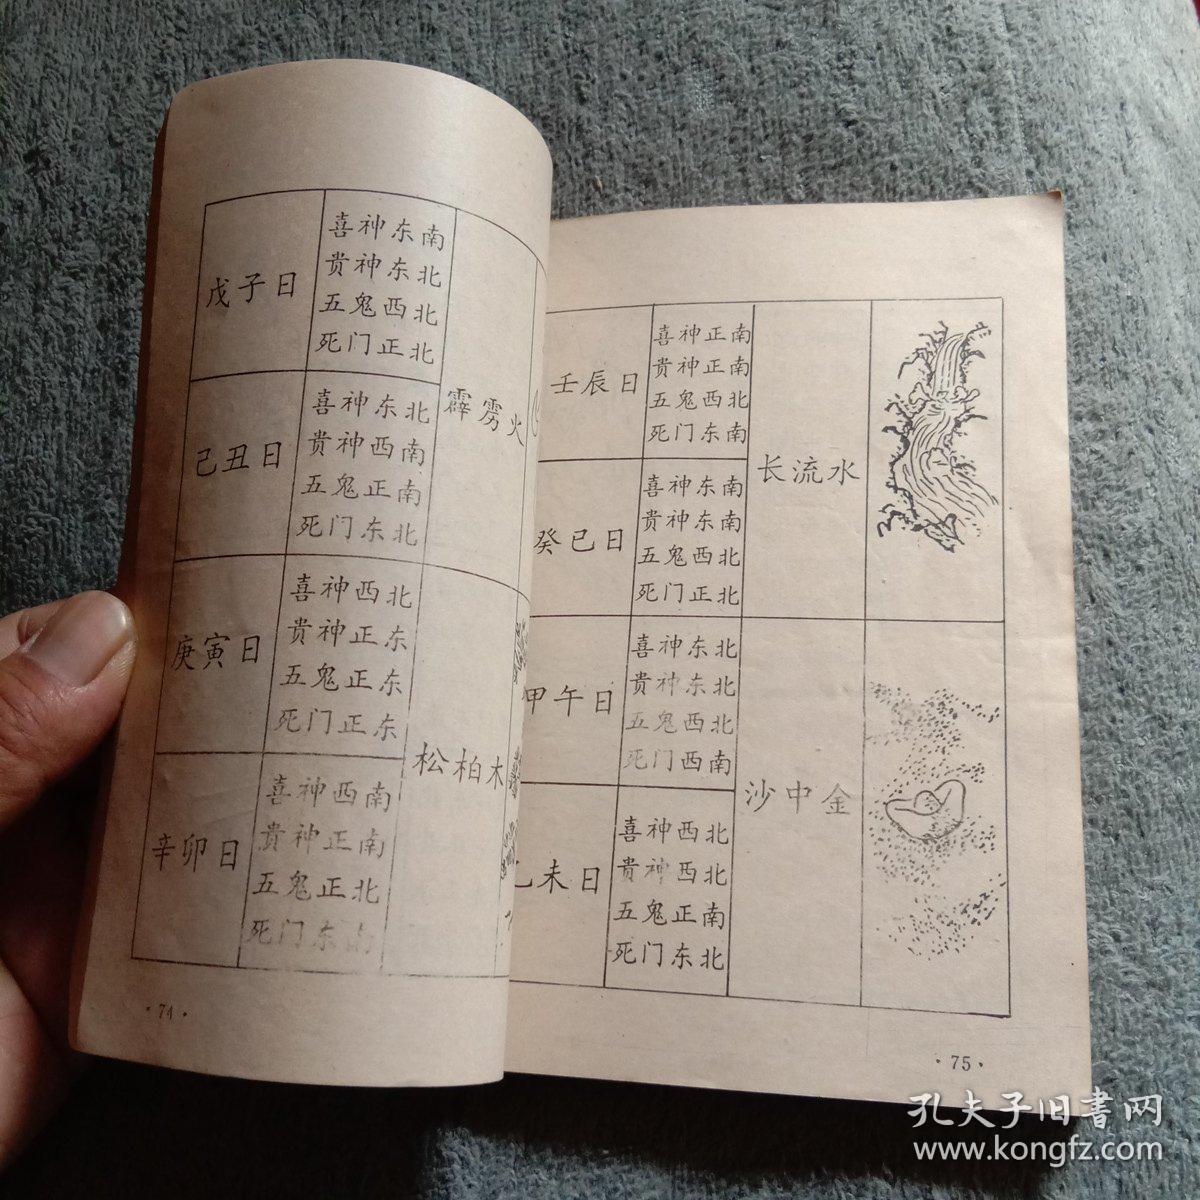 戊子日
喜神东南
贵神东北
五鬼西北
死门正北
己丑日
喜神东北
贵神西南
五鬼正南
死门东北
霹雳火
庚寅日
喜神西北
贵神正东
五鬼正东
死门正东
辛卯日
喜神西南
贵神正南
五鬼正北
死门东南
松柏木
·74·
壬辰日
喜神正南
贵神正南
五鬼西北
死门东南
癸巳日
喜神东南
贵神东南
五鬼西北
死门正北
长流水
甲午日
喜神东北
贵神东北
五鬼西北
死门西南
乙未日
喜神西北
贵神西北
五鬼正南
死门东北
沙中金
·75·
孔夫子旧書网
www.kongfz.com